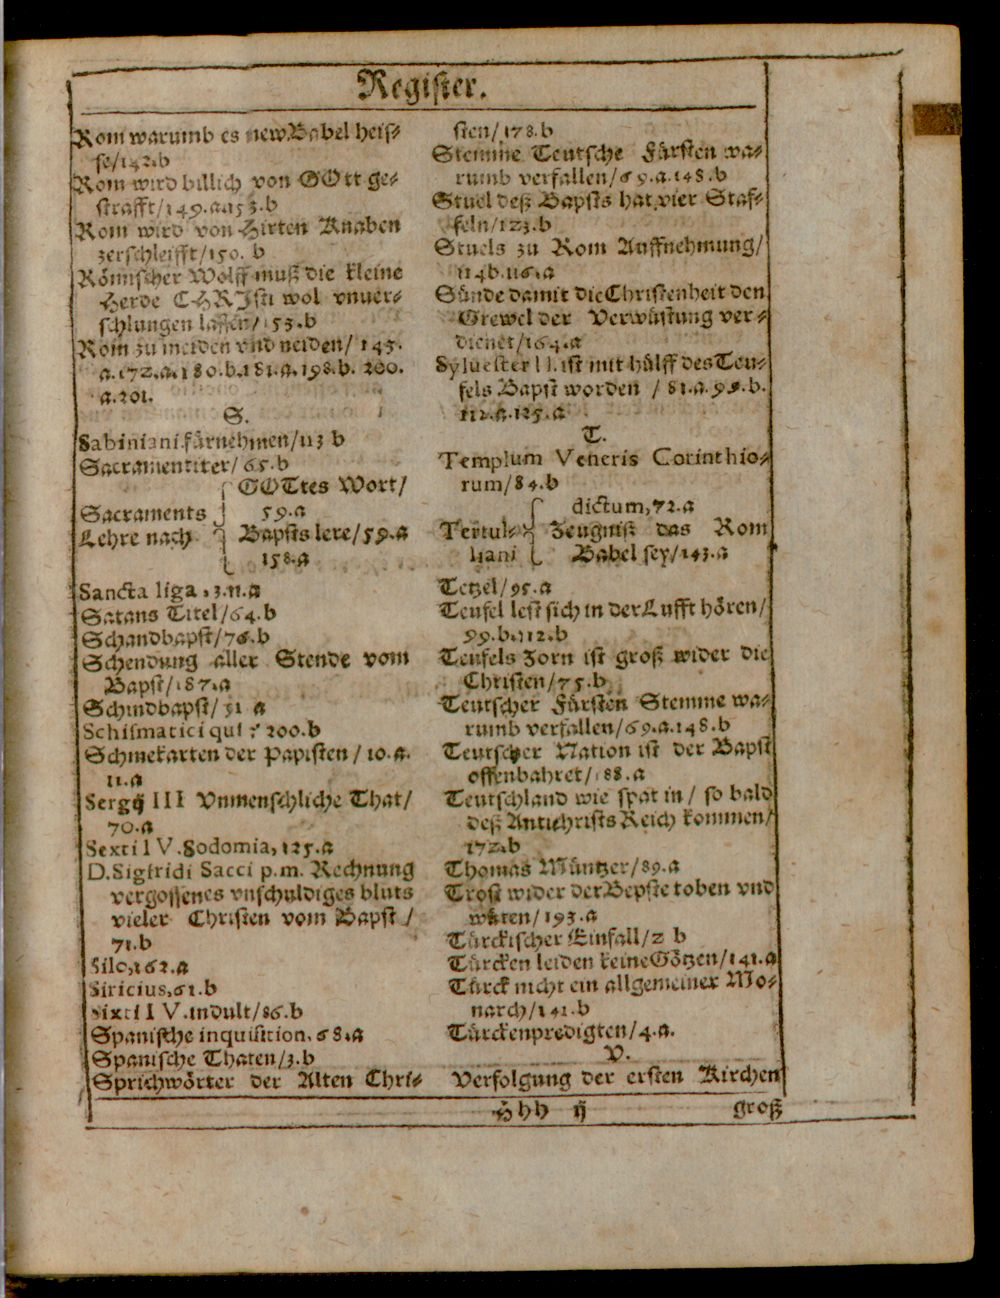 Register.
Rom warumb es new Babel heis⸗
se/142.b
Rom wird billich von GOtt ge⸗
strafft/149.a.153.b
Rom wird von Hirten Knaben
zerschleifft/150. b
Römischer Wolff muß die kleine
Herde CHRJsti wol vnuer⸗
schlungen lassen/153.b
Rom zu meiden vnd neiden/ 145.
a.172.a.180.b.181.a.198.b. 200.
a.201.
S.
Sabiniani fürnehmen/113 b
Sacramentirer/65.b
Sacraments
Lehre nach
GOTtes Wort/
59.a
Bapsts lere/59.a
158.a
Sancta liga,3.11.a
Satans Titel/64.b
Schandbapst/76.b
Schendung aller Stende vom
Bapst/187.a
Schindbapst/31 a
Schismatici qui? 200.b
Schmekarten der Papisten/10.a.
11.a
Sergij III Vnmenschliche That/
70.a
Sexti IV. Sodomia, 125.a
D. Sigfridi Sacci p.m. Rechnung
vergossenes vnschuldiges bluts
vieler Christen vom Bapst/
71.b
Silo,162.a
Siricius,61.b
Sixti IV. indult/86.b
Spanische inquisition. 68.a
Spanische Thaten/3.b
Sprichwörter der Alten Chri⸗
sten/178.b
Stemme Teutsche Fürsten wa⸗
rumb verfallen/69.a.148.b
Stuel deß Bapsts hat vier Staf⸗
feln/123.b
Stuels zu Rom Auffnehmung/
114b.116.a
Sünde damit die Christenheit den
Grewel der Verwüstung ver⸗
dienet/164.a
Syluester II. ist mit hülff des Teu⸗
fels Bapst worden / 81.a.99.b.
112.a.125.a
T.
Templum Veneris Corinthio⸗
rum/84.b
Tertul⸗
liani
dictum,72.a
Zeugniß das Rom
Babel sey/143.a
Tetzel/95.a
Teufel lest sich in der Lufft hören/
99.b.112.b
Teufels Zorn ist groß wider die
Christen/75.b
Teutscher Fürsten Stemme wa⸗
rumb verfallen/69.a.148.b
Teutscher Nation ist der Bapst
offenbahret/188.a
Teutschland wie spat in/ so bald
deß Antichrists Reich kommen/
172.b
Thomas Müntzer/89.a
Trost wider der Bepste toben vnd
wüten/193.a
Türckischer Einfall/2 b
Türcken leiden keine Götzen/141.a
Türck nicht ein allgemeiner Mo⸗
narch/141.b
Türckenpredigten/4.a.
V.
Verfolgung der ersten Kirchen
Hhh ij
groß